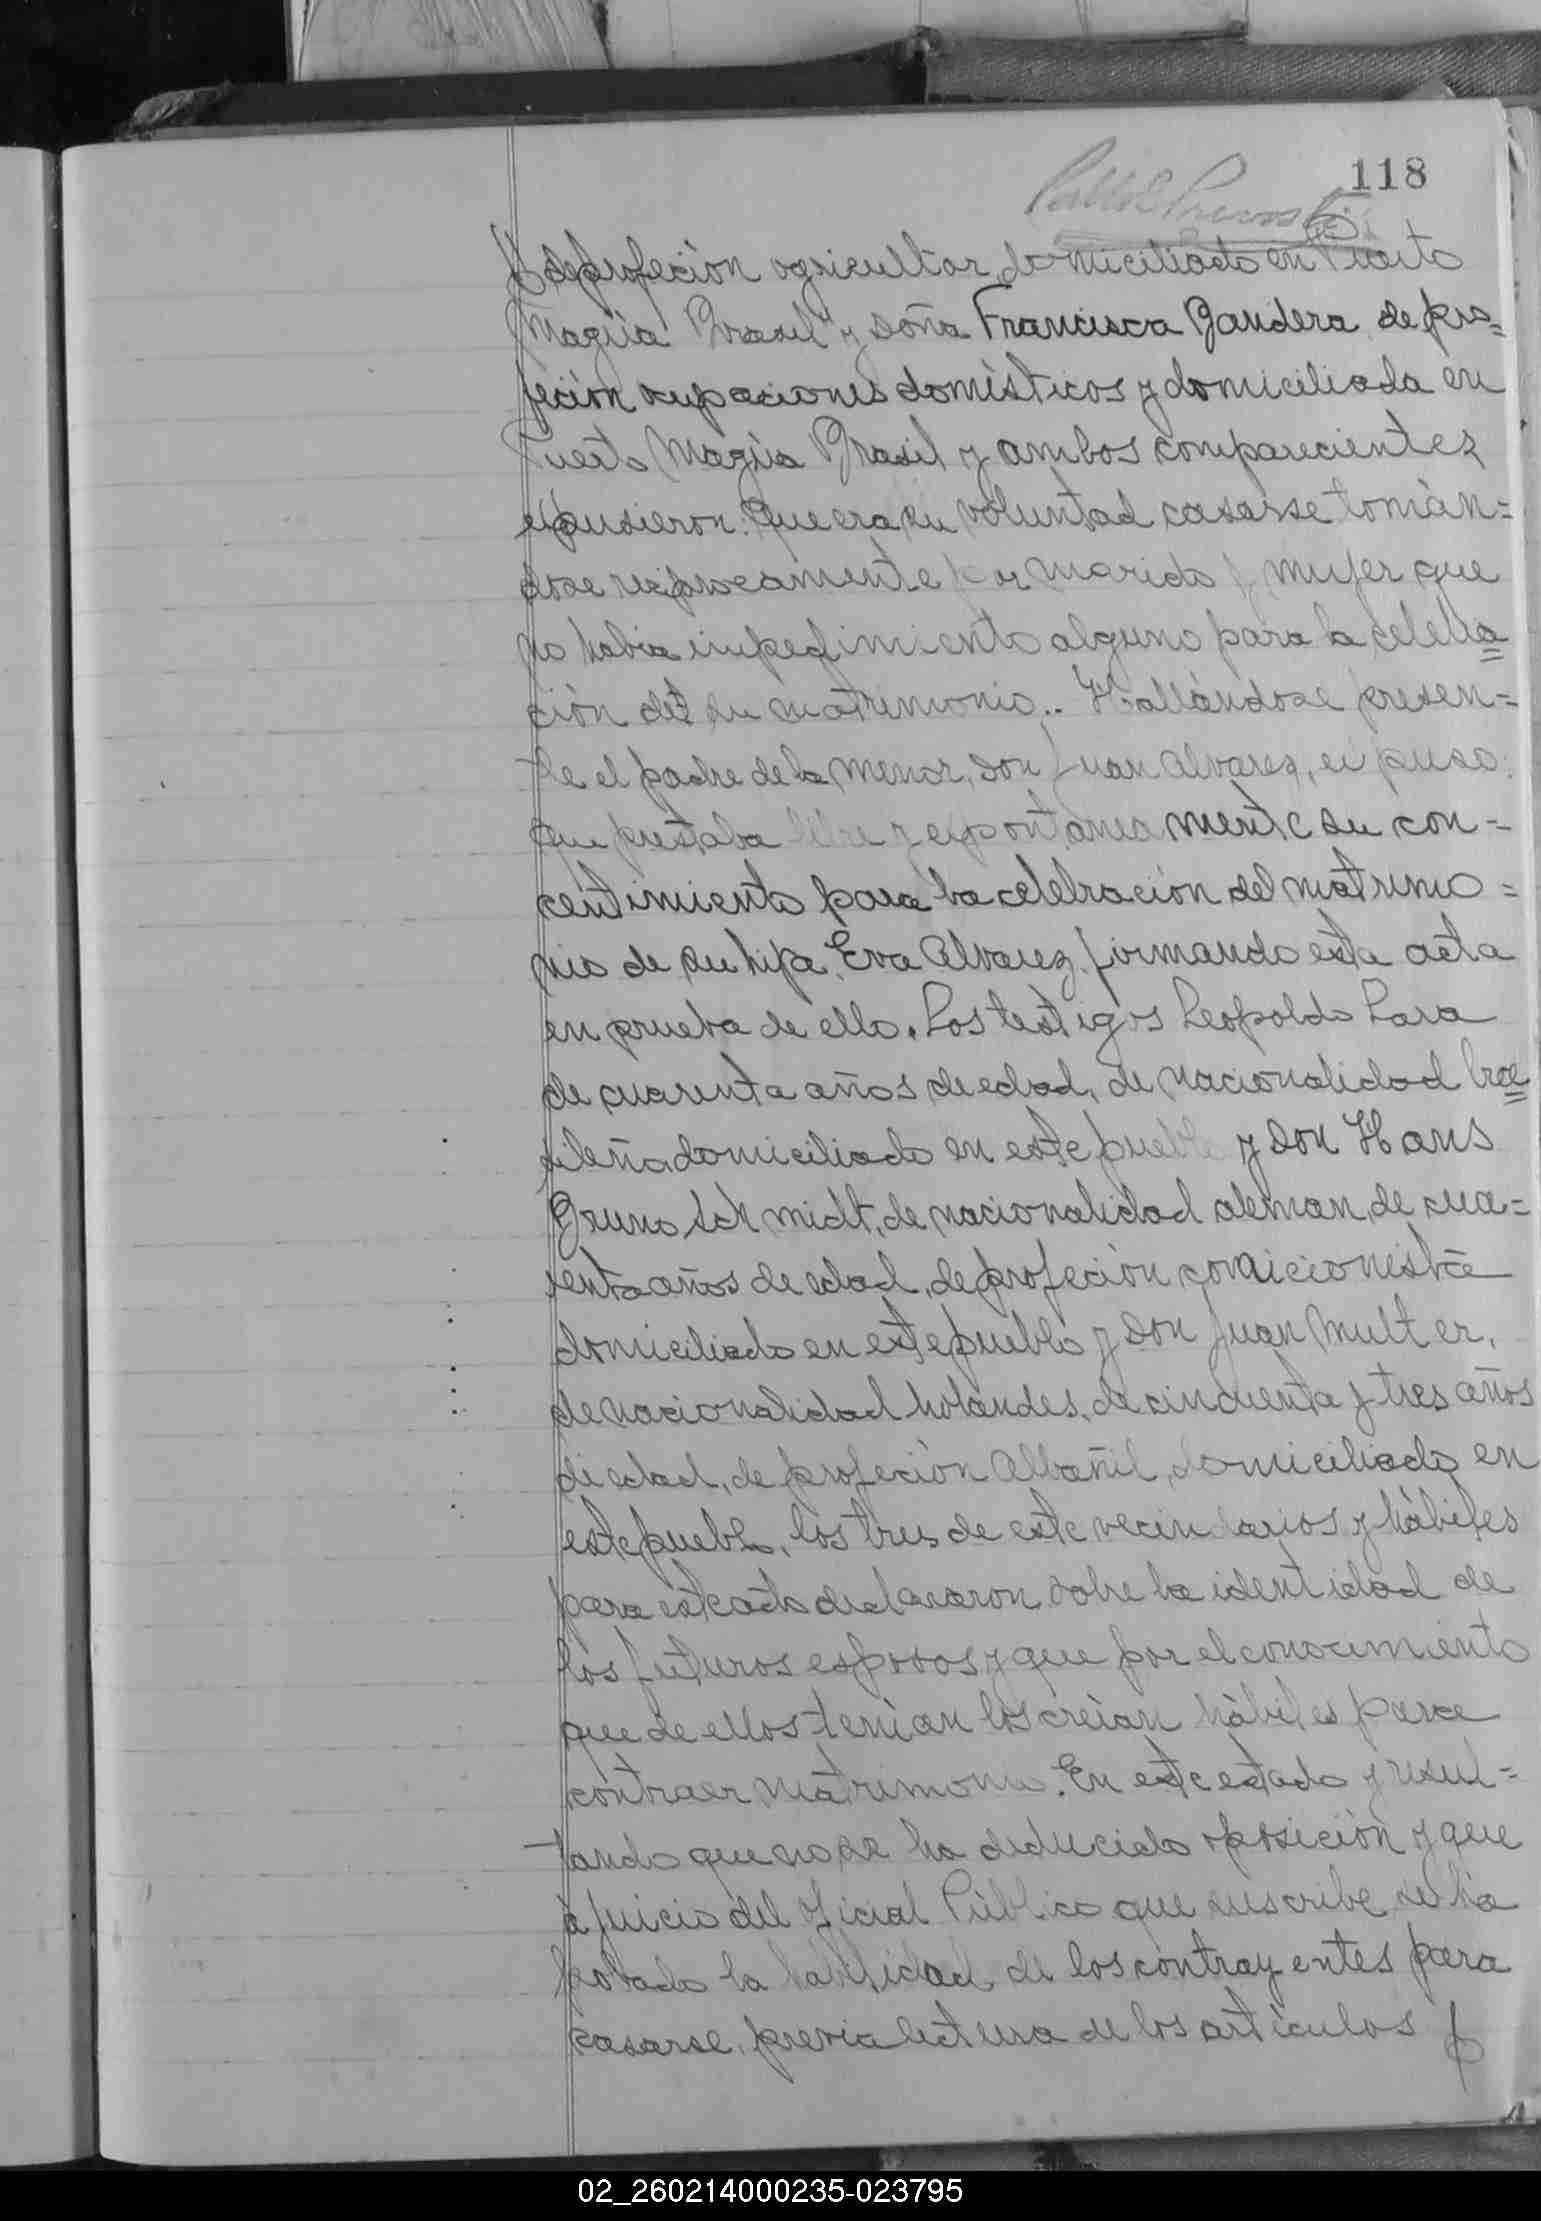 118
de profeción agricultor, domiciliado en Puerto
Magüa Brasil y doña Francisca Bandera, de pro=
feción ocupaciones domésticos y domiciliada en
Puerto Magüa Brasil y ambos comparecientes
expusieron: Que era su voluntad casarse tomàn=
dose reciprocamente por marido y mujer que
no habia impedimiento alguno para la celebra=
ción de su matrimonio.. Hallándose presen=
te el padre de la menor, don Juan Alvarez, expuso:
que prestaba libre y espontanea mente su con=
centimiento para la celebración del matrimo=
nio de su hija, Eva Alvarez, firmando esta acta
en prueba de ello. Los testigos Leopoldo Lara
de cuarenta años de edad, de nacionalidad bra=
sileña domiciliado en este pueblo y don Hans
Bruno Schmidt, de nacionalidad aleman, de cua=
renta años de edad, de profeción comicionista
domiciliado en este pueblo y don Juan Multer,
de nacionalidad holandes, de cincuenta y tres años
de edad, de profeción Albañil, domiciliado en
este pueblo, los tres de este vecindarios y hàbiles
para este acto declararon sobre la identidad de
los futuros esposos y que por el conocimiento
que de ellos tenian los creian hàbiles para
contraer matrimonio. En este estado y resul=
tando que no se ha deducido oposición y que
a juicio del Oficial Pùblico que suscribe se ha
probado la habilidad de los contrayentes para
casarse, previa lectura de los articulos
02_260214000235-023795